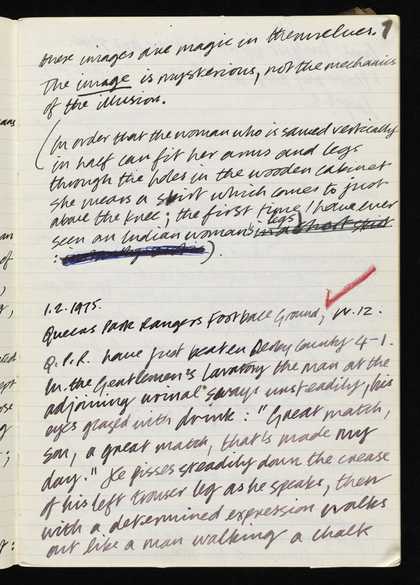 these images are magic in themselves.
The image is mysterious, not the mechanics
of the illusion.
(In order that the woman who is sawed vertically
in half can fit her arms and legs
through the holes in the wooden cabinet
she wears a skirt which comes to just
above the knee; the first time I have ever
seen an Indian woman's legs in a short skirt
).
1.2.1975.
Queens Park Rangers Football Ground, W.12.
Q.P.R. have just beaten Derby County 4-1.
In the Gentlemen's lavatory the man at the
adjoining urinal sways unsteadily, his
eyes glazed with drink: "Great match,
son, a great match, that's made my
day." He pisses steadily down the crease
of his left trouser leg as he speaks, then
with a determined expression walks
out like a man walking a chalk